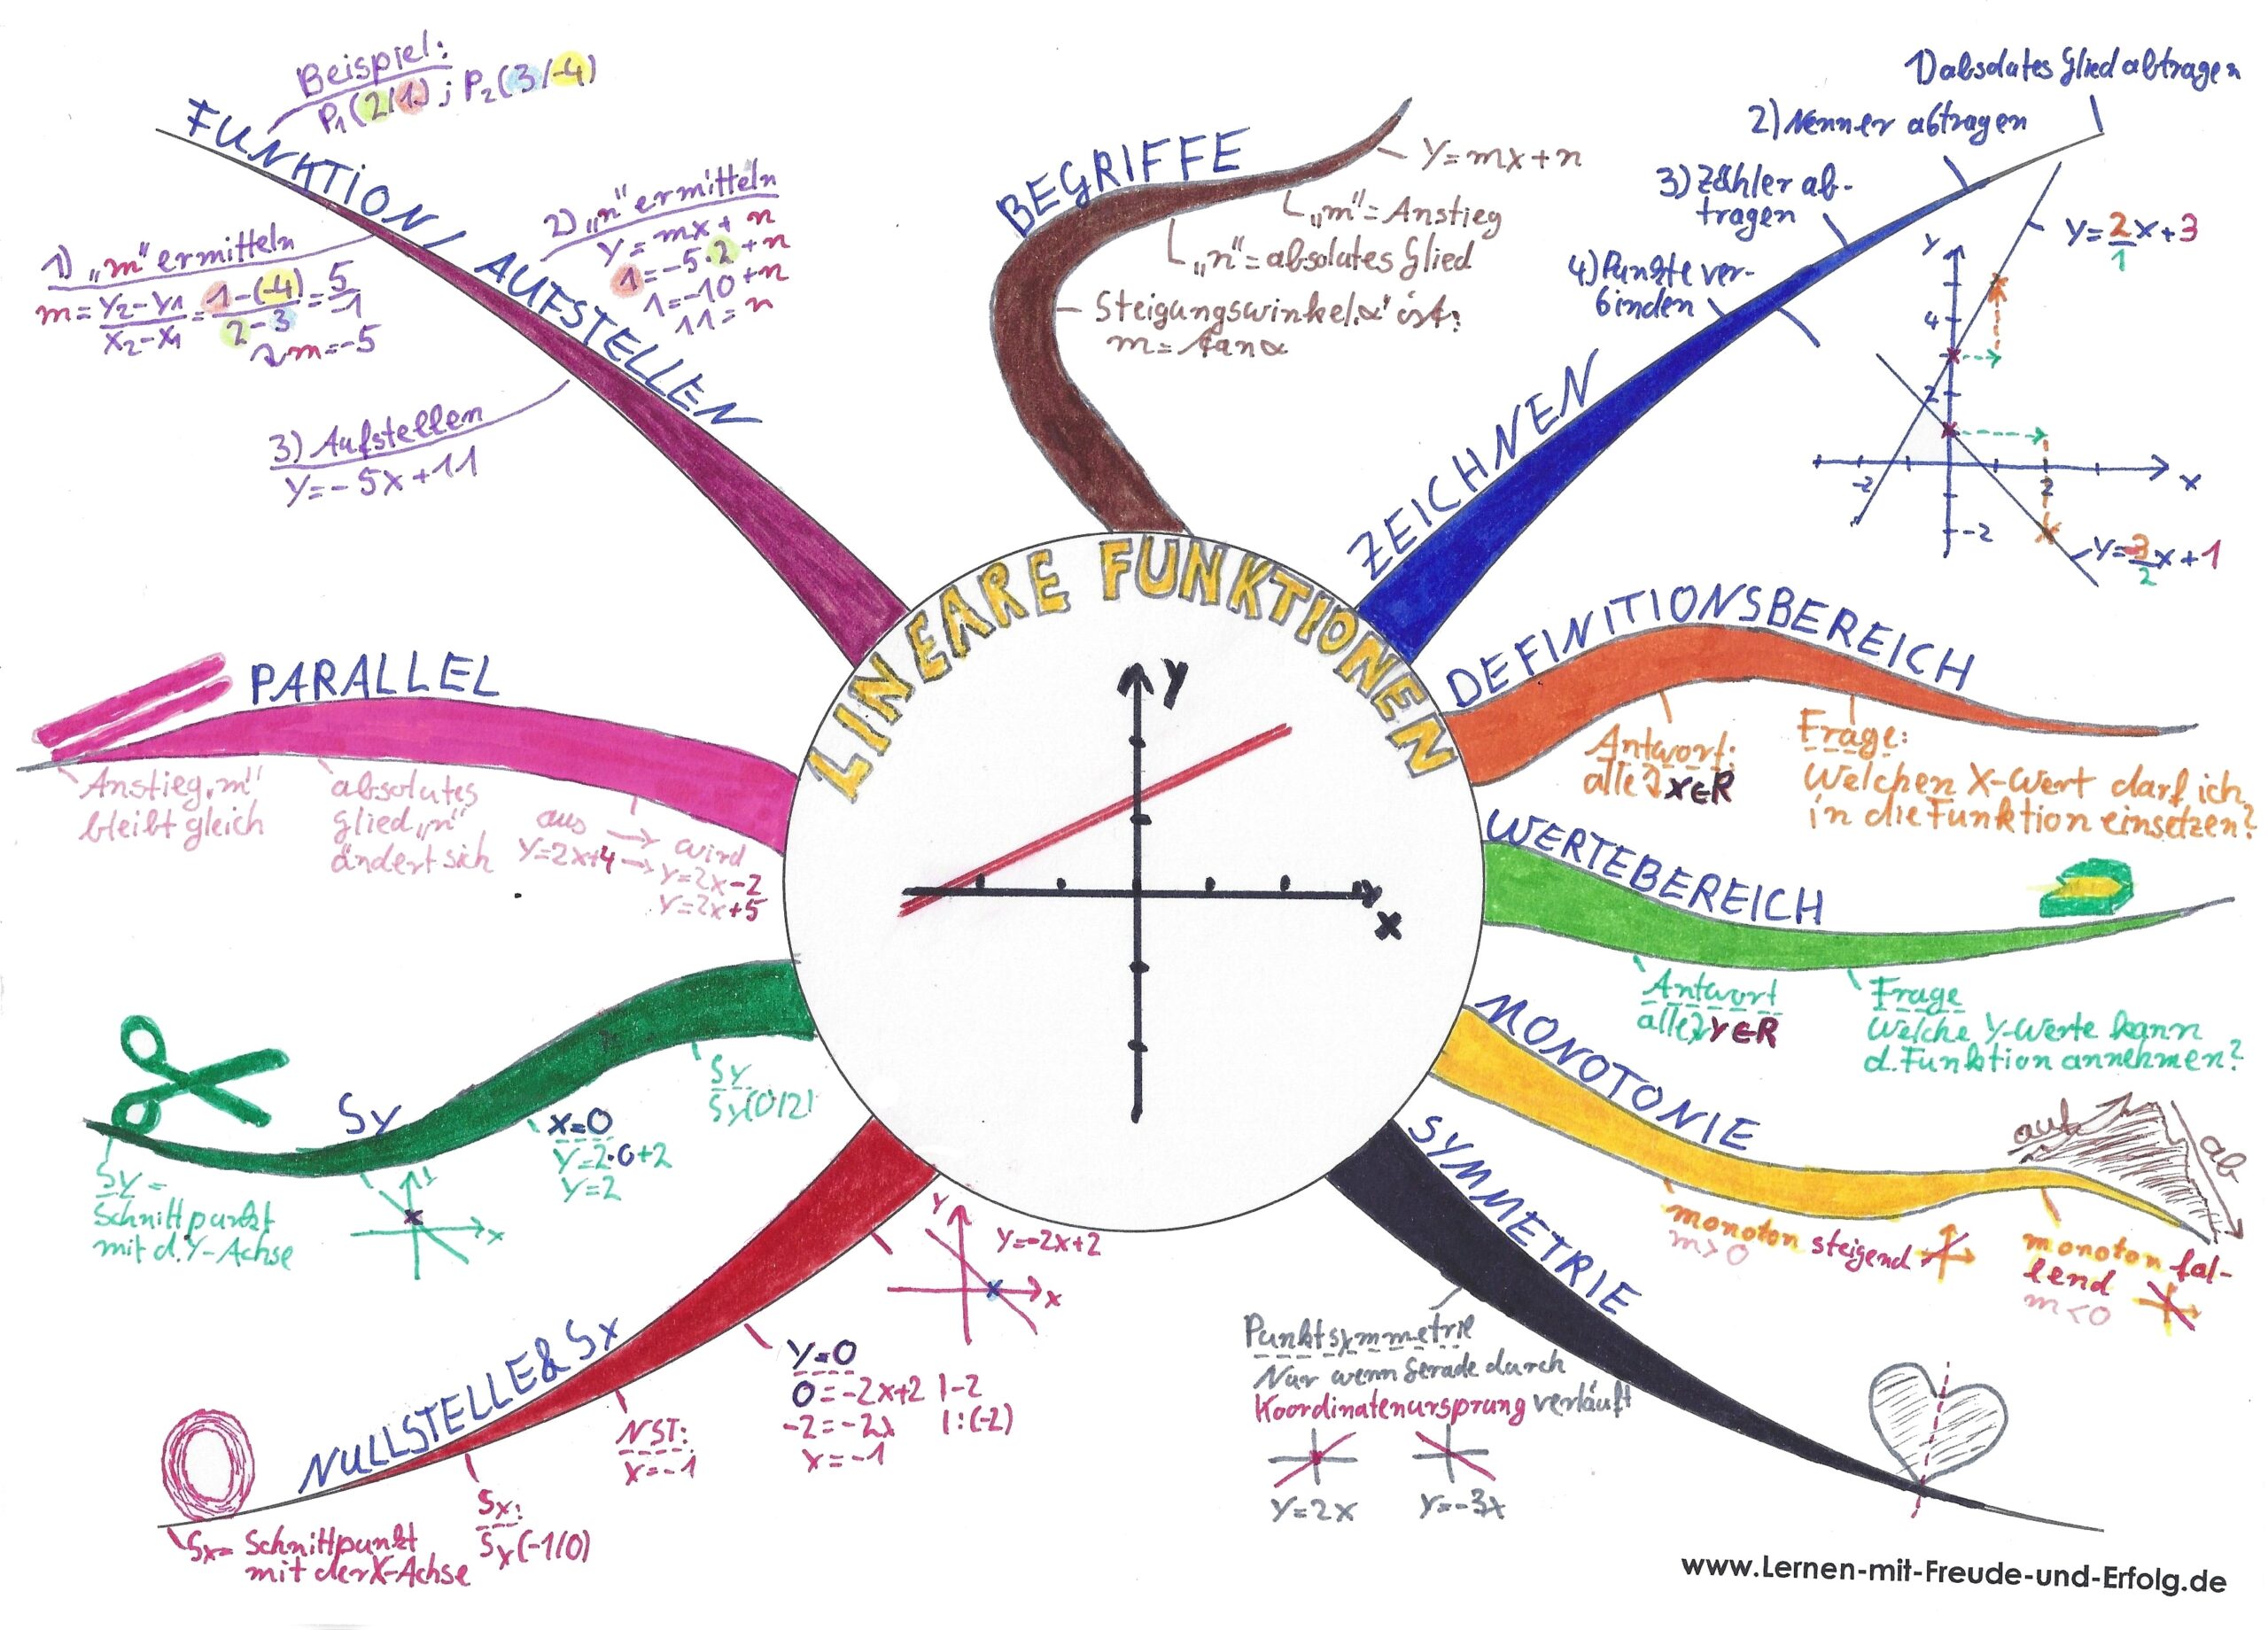 LINEARE FUNKTIONEN
y
x
FUNKTION / AUFSTELLEN
Beispiel:
P1(2/1) ; P2(3/-4)
1) „m" ermitteln
m = y2-y1 / x2-x1 = 1-(-4) / 2-3 = 5 / -1
m=-5
2) „n" ermitteln
y = mx + n
1=-5·2+n
1=-10+n
11=n
3) Aufstellen
y=-5x+11
BEGRIFFE
y=mx+n
„m"=Anstieg
„n"=absolutes Glied
Steigungswinkel „α" ist:
m=tanα
ZEICHNEN
1) absolutes Glied abtragen
2) Nenner abtragen
3) Zähler ab-
tragen
4) Punkte ver-
binden
y=2/1x+3
y
4
2
-2
2
x
-2
y=-3/2x+1
DEFINITIONSBEREICH
Antwort:
alle x∈R
Frage:
Welchen X-Wert darf ich
in die Funktion einsetzen?
WERTEBEREICH
Antwort
alle y∈R
Frage
Welche Y-Werte kann
d. Funktion annehmen?
MONOTONIE
auf
ab
monoton steigend
m>0
monoton fal-
lend
m<0
SYMMETRIE
Punktsymmetrie
Nur wenn Gerade durch
Koordinatenursprung verläuft
y=2x
y=-3x
PARALLEL
Anstieg „m"
bleibt gleich
absolutes
Glied „n"
ändert sich
aus → wird
y=2x+4 → y=2x-2
y=2x+5
Sy
Sy =
Schnittpunkt
mit d. Y-Achse
y
x
x=0
y=2·0+2
y=2
Sy
Sy(0/2)
NULLSTELLE & Sx
Sx= Schnittpunkt
mit der X-Achse
Sx:
Sx(-1/0)
NST:
x=-1
y=0
0=-2x+2 |-2
-2=-2x |:(-2)
x=-1
y
x
y=-2x+2
www.Lernen-mit-Freude-und-Erfolg.de